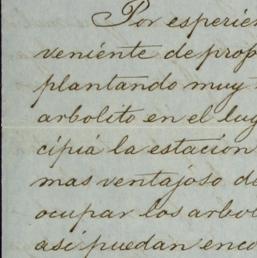 Por esperien
veniente de prop
plantando muy
arbolito en el lug
cipiá la estacion
mas ventajoso de
ocupar los arbol
asi puedan enco